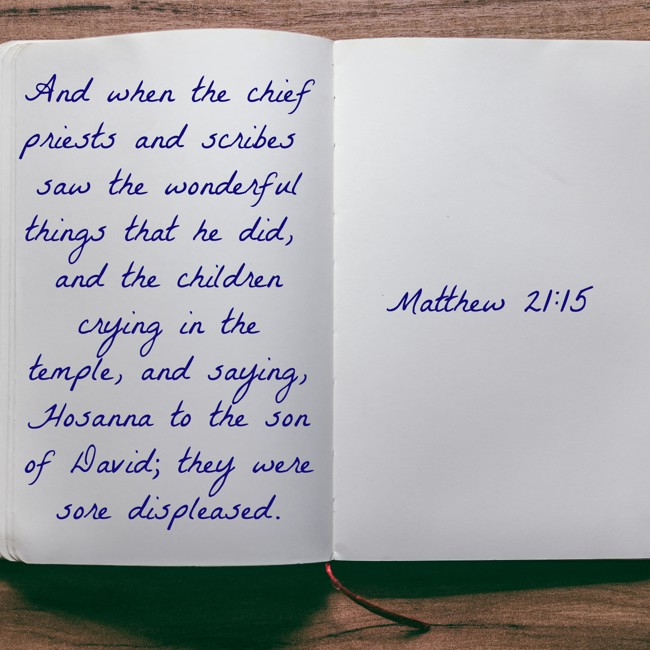 And when the chief
priests and scribes
saw the wonderful
things that he did,
and the children
crying in the
temple, and saying,
Hosanna to the son
of David; they were
sore displeased.
Matthew 21:15